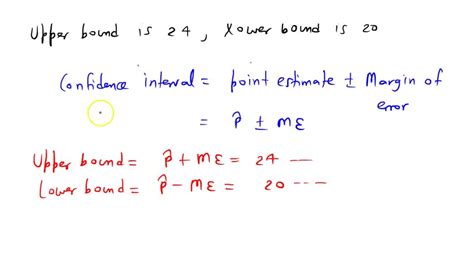 Upper bound is 24 , Lower bound is 20
Confidence interval = point estimate ± Margin of error
= p̂ ± ME
Upper bound = p̂ + ME = 24 ---
Lower bound = p̂ - ME = 20 ---